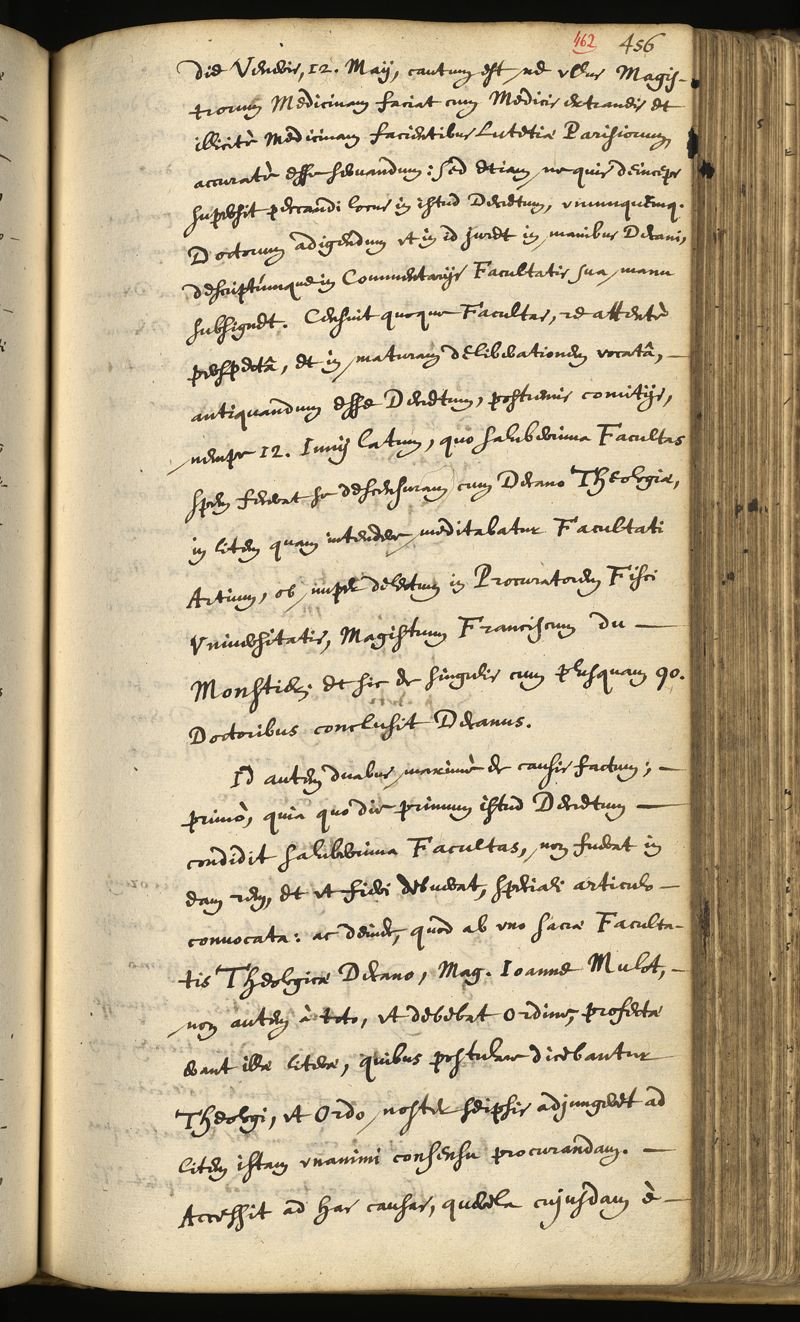 462 456
die Veneris, 12. Maij, cautum est, ne vllus Magis-
trorum Medicinam faciat cum Medicis extraneis et
illicitè Medicinam facientibus Lutetiæ Parisiorum,
accuratè esse seruandum: sed etiam, ne quis deinceps
supersit peccandi locus in istud Decretum, vnumquemq.
Doctorum adigendum vt in id juret in manibus Decani,
descriptúmque in Commentarijs Facultatis sua manu
subsignet. Censuit quoque Facultas, re attentè
perspectâ, et in maturam deliberationem vocatâ, —
antiquandum esse Decretum, postremis comitijs,
nempe 12. Iunij latum, quo saluberrima Facultas
spem fecerat se descensuram cum Decano Theologiæ,
in litem quam intendere meditabatur Facultati
Artium, ob nuper delectum in Procuratorem Fisci
Vniuersitatis, Magistrum Franciscum du —
Monstier; et sic de singulis cum plusquam 90.
Doctoribus conclusit Decanus.
Id autem duabus maximè de causis factum; —
primò, quia quo die primum istud Decretum —
condidit saluberrima Facultas, non fuerat in
eam rem, et vt fieri debuerat, speciali articulo —
conuocata: ac deinde, quòd ab vno sacræ Faculta-
tis Theologicæ Decano, Mag. Ioanne Mulot, —
non autem à toto, vt debebat Ordine, profectæ
erant illæ literæ, quibus postulare dicebantur
Theologi, vt Ordo noster seipsis adjungeret ad
litem istam vnanimi consensu procurandam. —
Accessit ad has causas, querela cujusdam è —